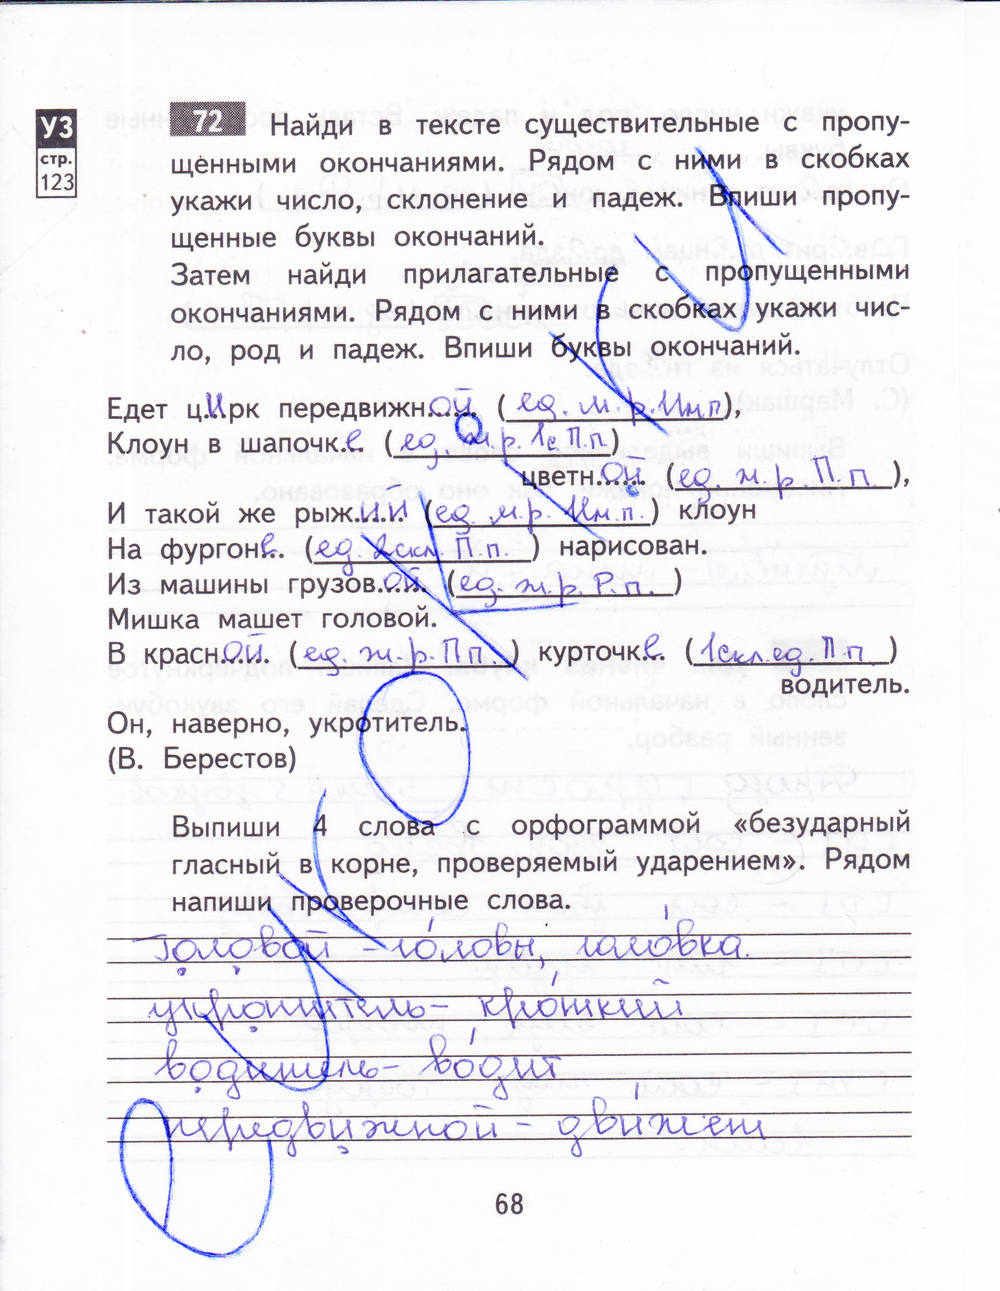 УЗ
стр.
123
72 Найди в тексте существительные с пропу-
щенными окончаниями. Рядом с ними в скобках
укажи число, склонение и падеж. Впиши пропу-
щенные буквы окончаний.
Затем найди прилагательные с пропущенными
окончаниями. Рядом с ними в скобках укажи чис-
ло, род и падеж. Впиши буквы окончаний.
Едет цирк передвижн..ой (ед. м.р. Им.п),
Клоун в шапочке (ед. ж.р. 1с П.п)
цветн.ой. (ед. ж.р. П.п.),
И такой же рыж.ий (ед. м.р. Им.п.) клоун
На фургоне.. (ед. 2скл. П.п.) нарисован.
Из машины грузов.ой. (ед. ж.р. Р.п.)
Мишка машет головой.
В красн.ой. (ед. ж.р. П.п) курточке. (1скл.ед. П.п)
водитель.
Он, наверно, укротитель.
(В. Берестов)
Выпиши 4 слова с орфограммой «безударный
гласный в корне, проверяемый ударением». Рядом
напиши проверочные слова.
головой – головы, головка.
укротитель – кроткий
водитель – водит
передвижной – движет
68